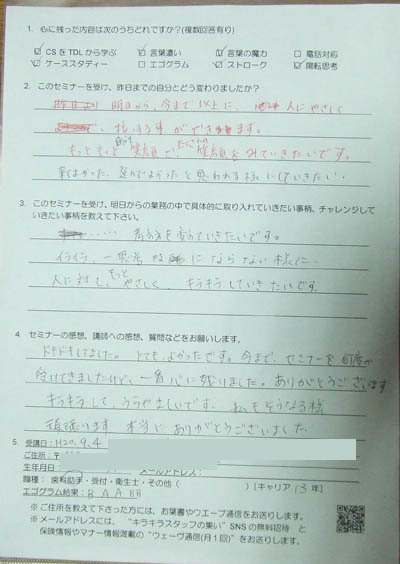 1. 心に残った内容は次のうちどれですか?(複数回答有り)
☑ CSをTDLから学ぶ ☑ 言葉遣い ☑ 言葉の魔力 □ 電話対応
☑ ケーススタディー □ エゴグラム ☑ ストローク ☑ 陽転思考
2. このセミナーを受け、昨日までの自分とどう変わりましたか?
明日から、今まで以上に、人にやさしく
接する事ができます。
もっともっと笑顔でたくさんの笑顔をみていきたいです。
来てよかった、選んでよかったと思われる様にしていきたい。
3. このセミナーを受け、明日からの業務の中で具体的に取り入れていきたい事柄、チャレンジして
いきたい事柄を教えて下さい。
考え方を変えていきたいです。
イライラ、一喜一憂にならない様に…
人に対し、もっとやさしく、キラキラしていきたいです
4. セミナーの感想、講師への感想、質問などをお願いします。
ドキドキしてました。とてもよかったです。今まで、セミナーを何度か
受けてきましたけど、一番心に残りました。ありがとうございます
キラキラして、うらやましいです。私もそうなる様
頑張ります 本当に ありがとうございました
5. 受講日:H20.9.4
ご住所:〒
生年月日 メールアドレス:
職種:歯科助手・受付・衛生士・その他( )[キャリア 13年]
エゴグラム結果:B A A B B
※ご住所を教えて下さった方には、お葉書やウエーブ通信をお送りします。
※メールアドレスには、“キラキラスタッフの集い”SNSの無料招待 と
保険情報やマナー情報満載の“ウェーヴ通信(月1回)”をお送りします。